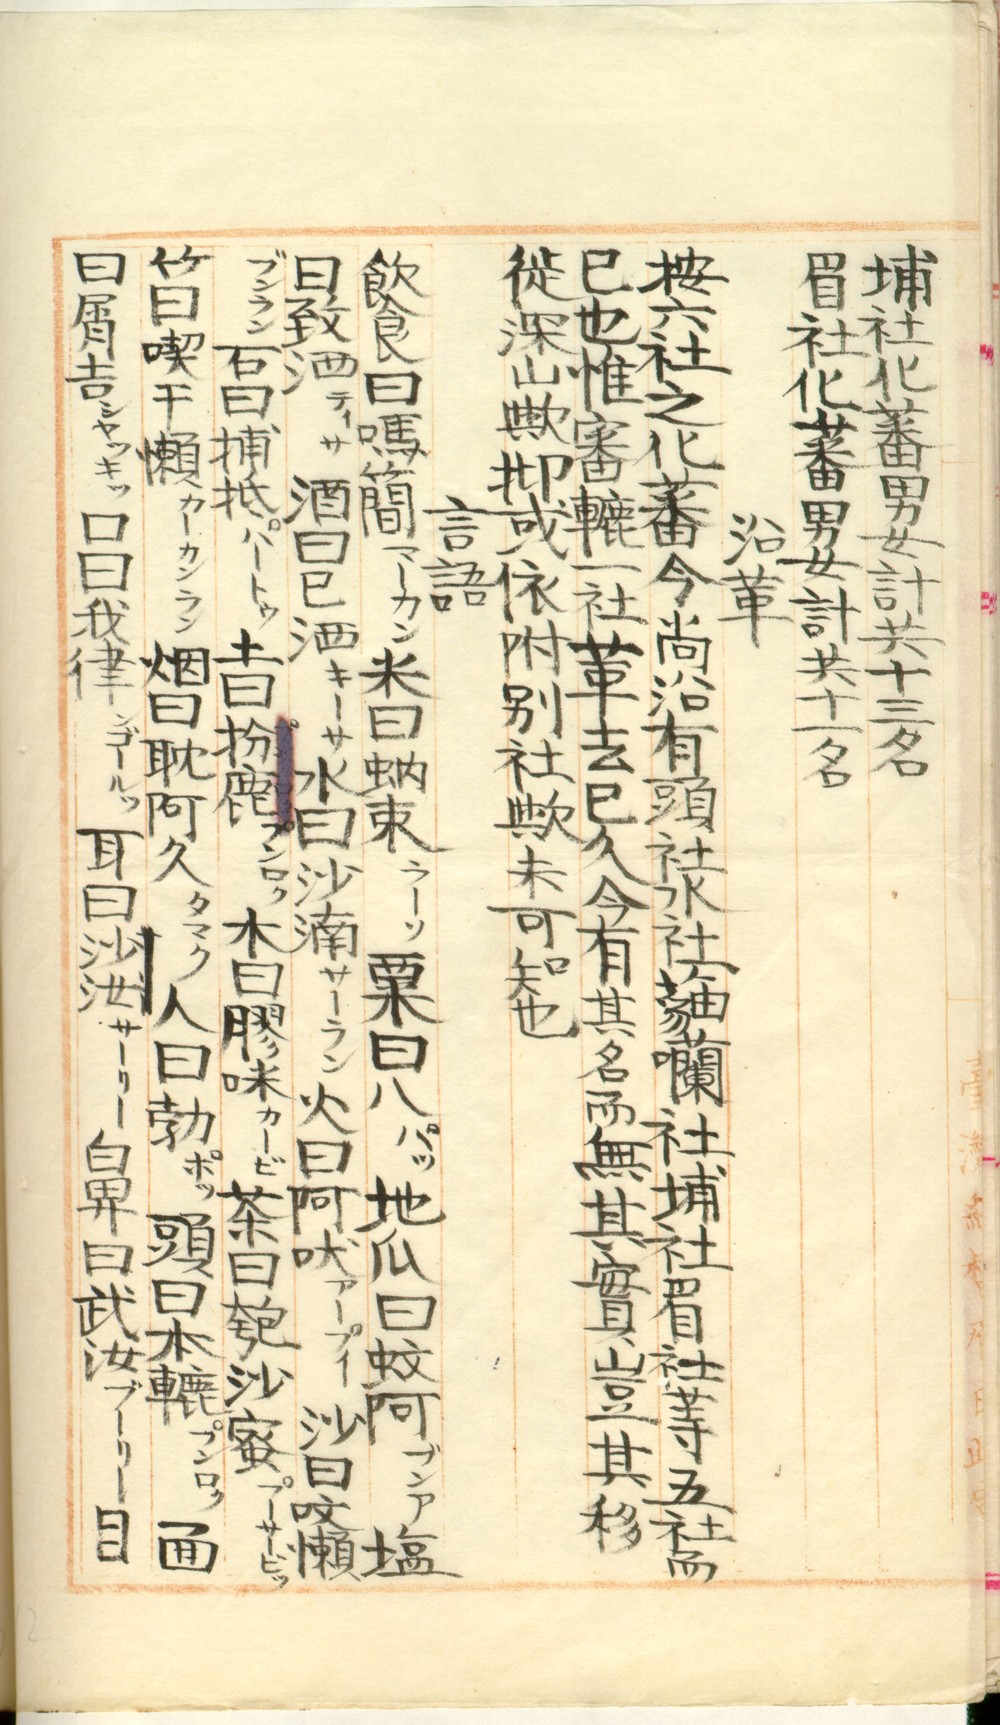 埔社化蕃男女計共十三名
眉社化蕃男女計共十一名
沿革
按六社之化蕃今尚沿有頭社水社猫蘭社埔社眉社等五社而
已也惟審轆一社革去已久今有其名而無其實豈其移
徙深山歟抑或依附別社歟未可知也
言語
飲食曰嗎簡マーカン米曰蚋束ラーソ粟曰八パッ地瓜曰蚊阿ブンア塩
曰致洒ティサ酒曰已洒キーサ水曰沙湳サーラン火曰阿吠アープイ沙曰呅懶
ブンラン石曰捕抵パートゥ土曰扮鹿プンロク木曰膠咪カービ茶曰匏沙蜜プーサービッ
竹曰喫干懶カーカンラン烟曰耽阿久タマク人曰勃ポッ頭曰本轆プンロク面
曰屑吉シャッキッ口曰我律ンゴールッ耳曰沙汝サーリー鼻曰武汝ブーリー目